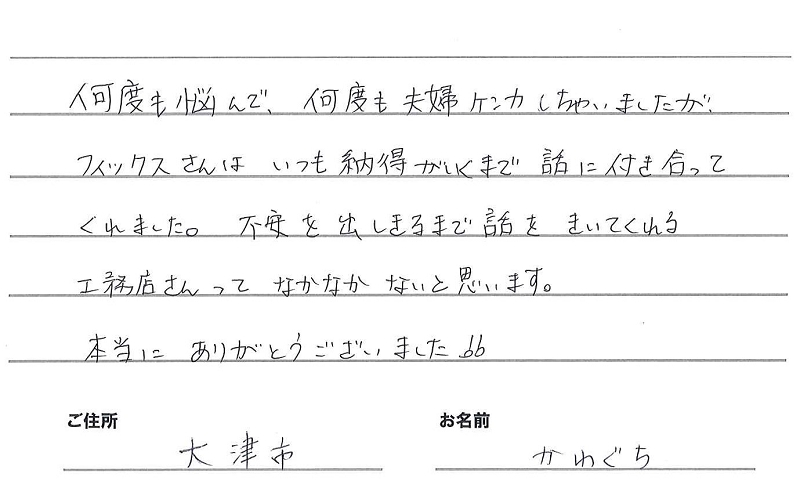 何度も悩んで、何度も夫婦ケンカしちゃいましたが、
フィックスさんは いつも納得がいくまで 話に付き合って
くれました。 不安を出しきるまで話を きいてくれる
工務店さんって なかなか ないと思います。
本当に ありがとうございました
ご住所 お名前
大津市 かわぐち